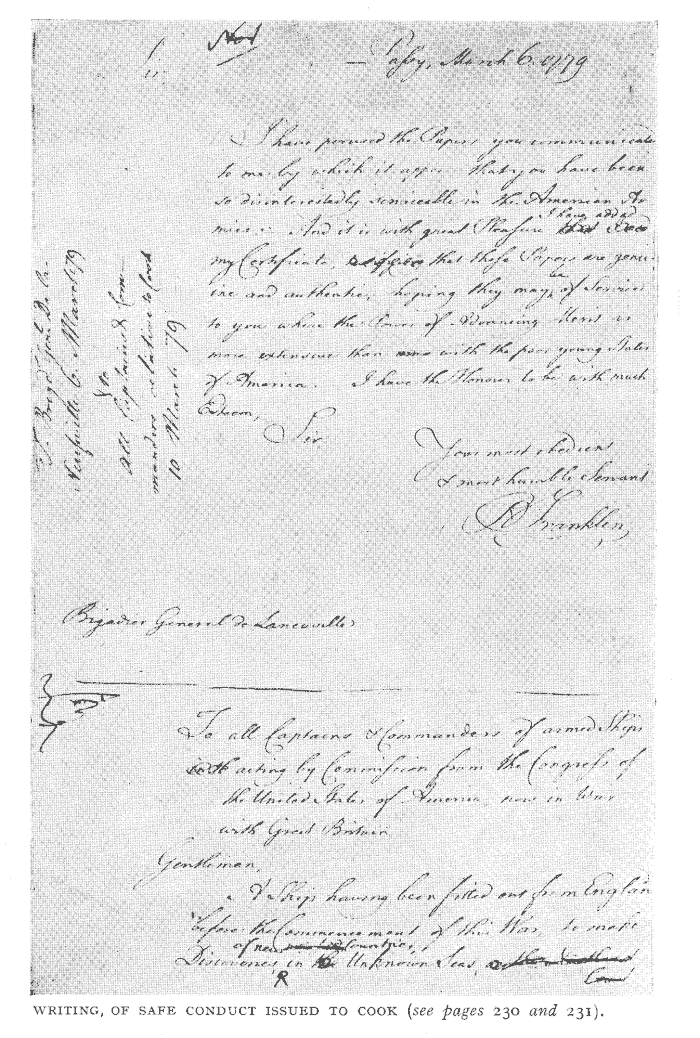 Sir
Passy, March 6. 1779
I have perused the Papers you communicated
to me, by which it appears that you have been
so disinterestedly serviceable in the American Ar
mies: And it is with great Pleasure
I have added
my Certificate, that those Papers are genu-
ine and authentic, hoping they may be of Service
to you where the Power of Advancing Merit is
more extensive than with the poor young States
of America. I have the Honour to be with much
Esteem,
Sir
Your most obedient
& most humble Servant
B Franklin
Brigadier General de Laneuville
To Brigd Genl De La
Neufville 6. March 79
& to
All Captains & Com-
manders relative to Cook
10 March 79
To all Captains & Commanders of armed Ships
acting by Commission from the Congress of
the United States of America, now in War
with Great Britain
Gentlemen,
A Ship having been fitted out from England
before the Commencement of this War, to make
of new Countries,
Discoveries in Unknown Seas,
WRITING, OF SAFE CONDUCT ISSUED TO COOK (see pages 230 and 231).